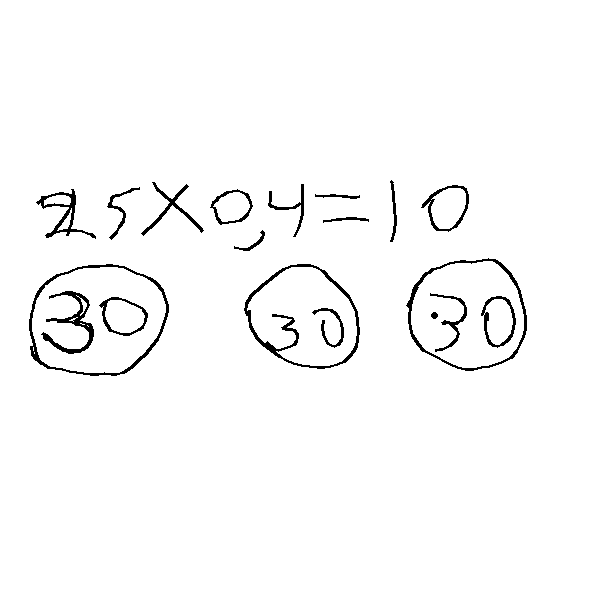 25×0,4=10
30 30 30